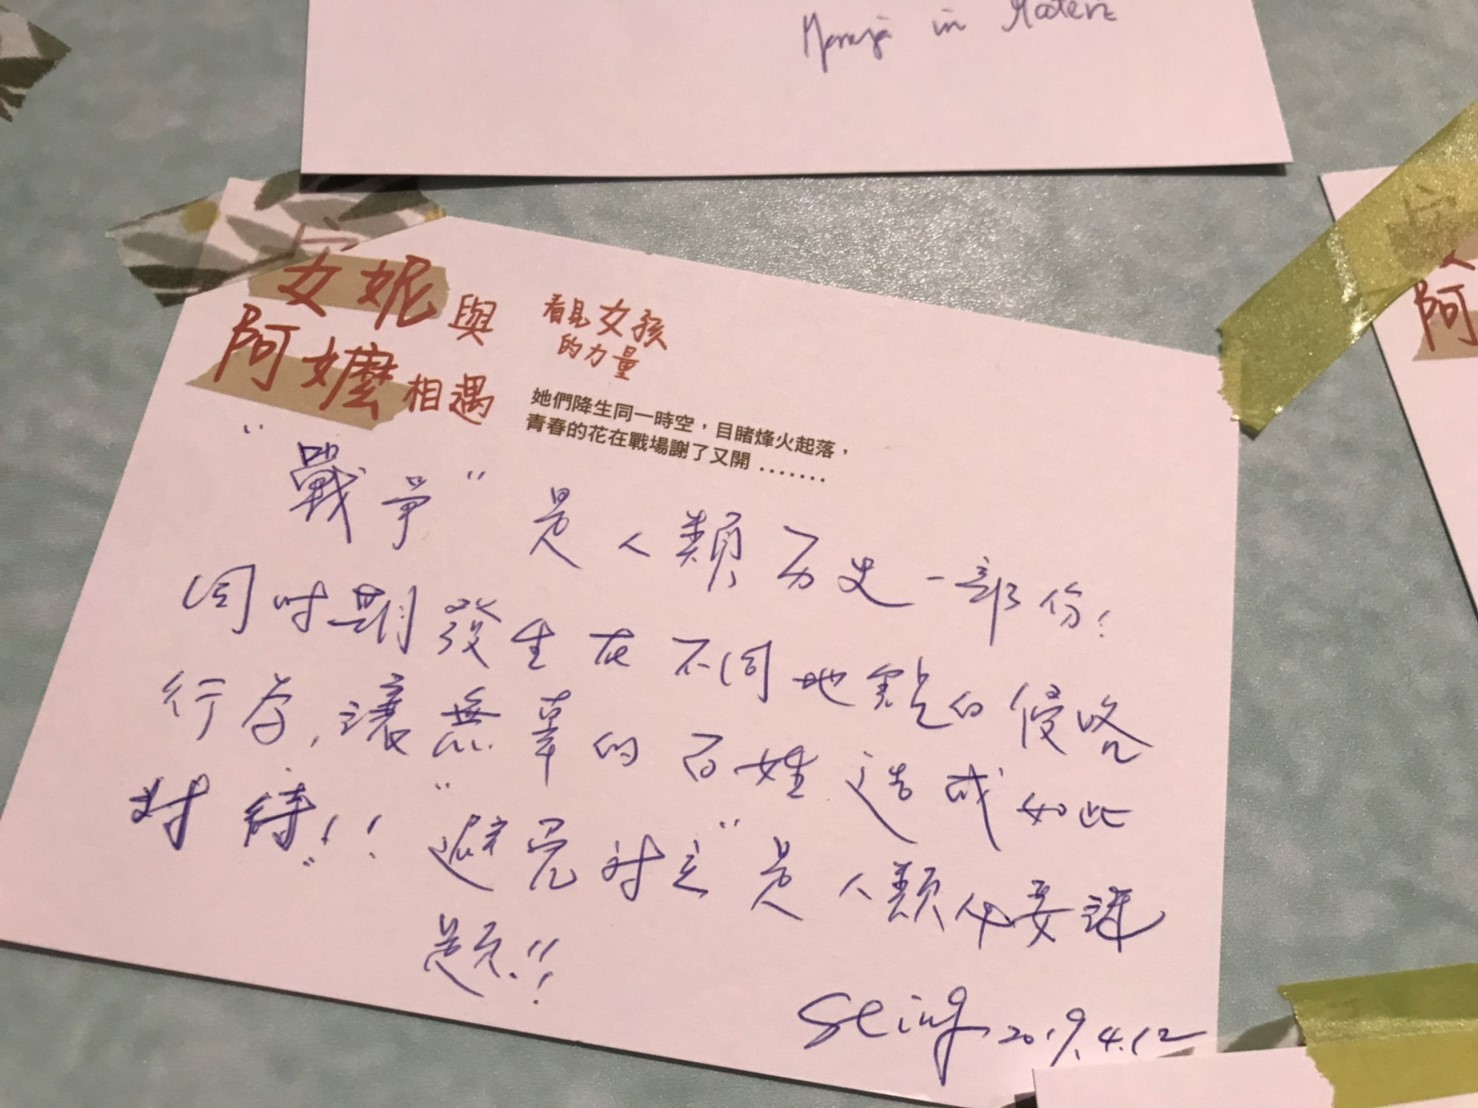 in
安妮與
阿嬤相遇
看見女孩
的力量
她們降生同一時空，目睹烽火起落，
青春的花在戰場謝了又開 .......
"戰爭"是人類历史一部份!
同时期發生在不同地點的侵略
行为,讓無辜的百姓造成如此
對待!! "避免对立"是人類必要課
題!!
2019.4.12
阿